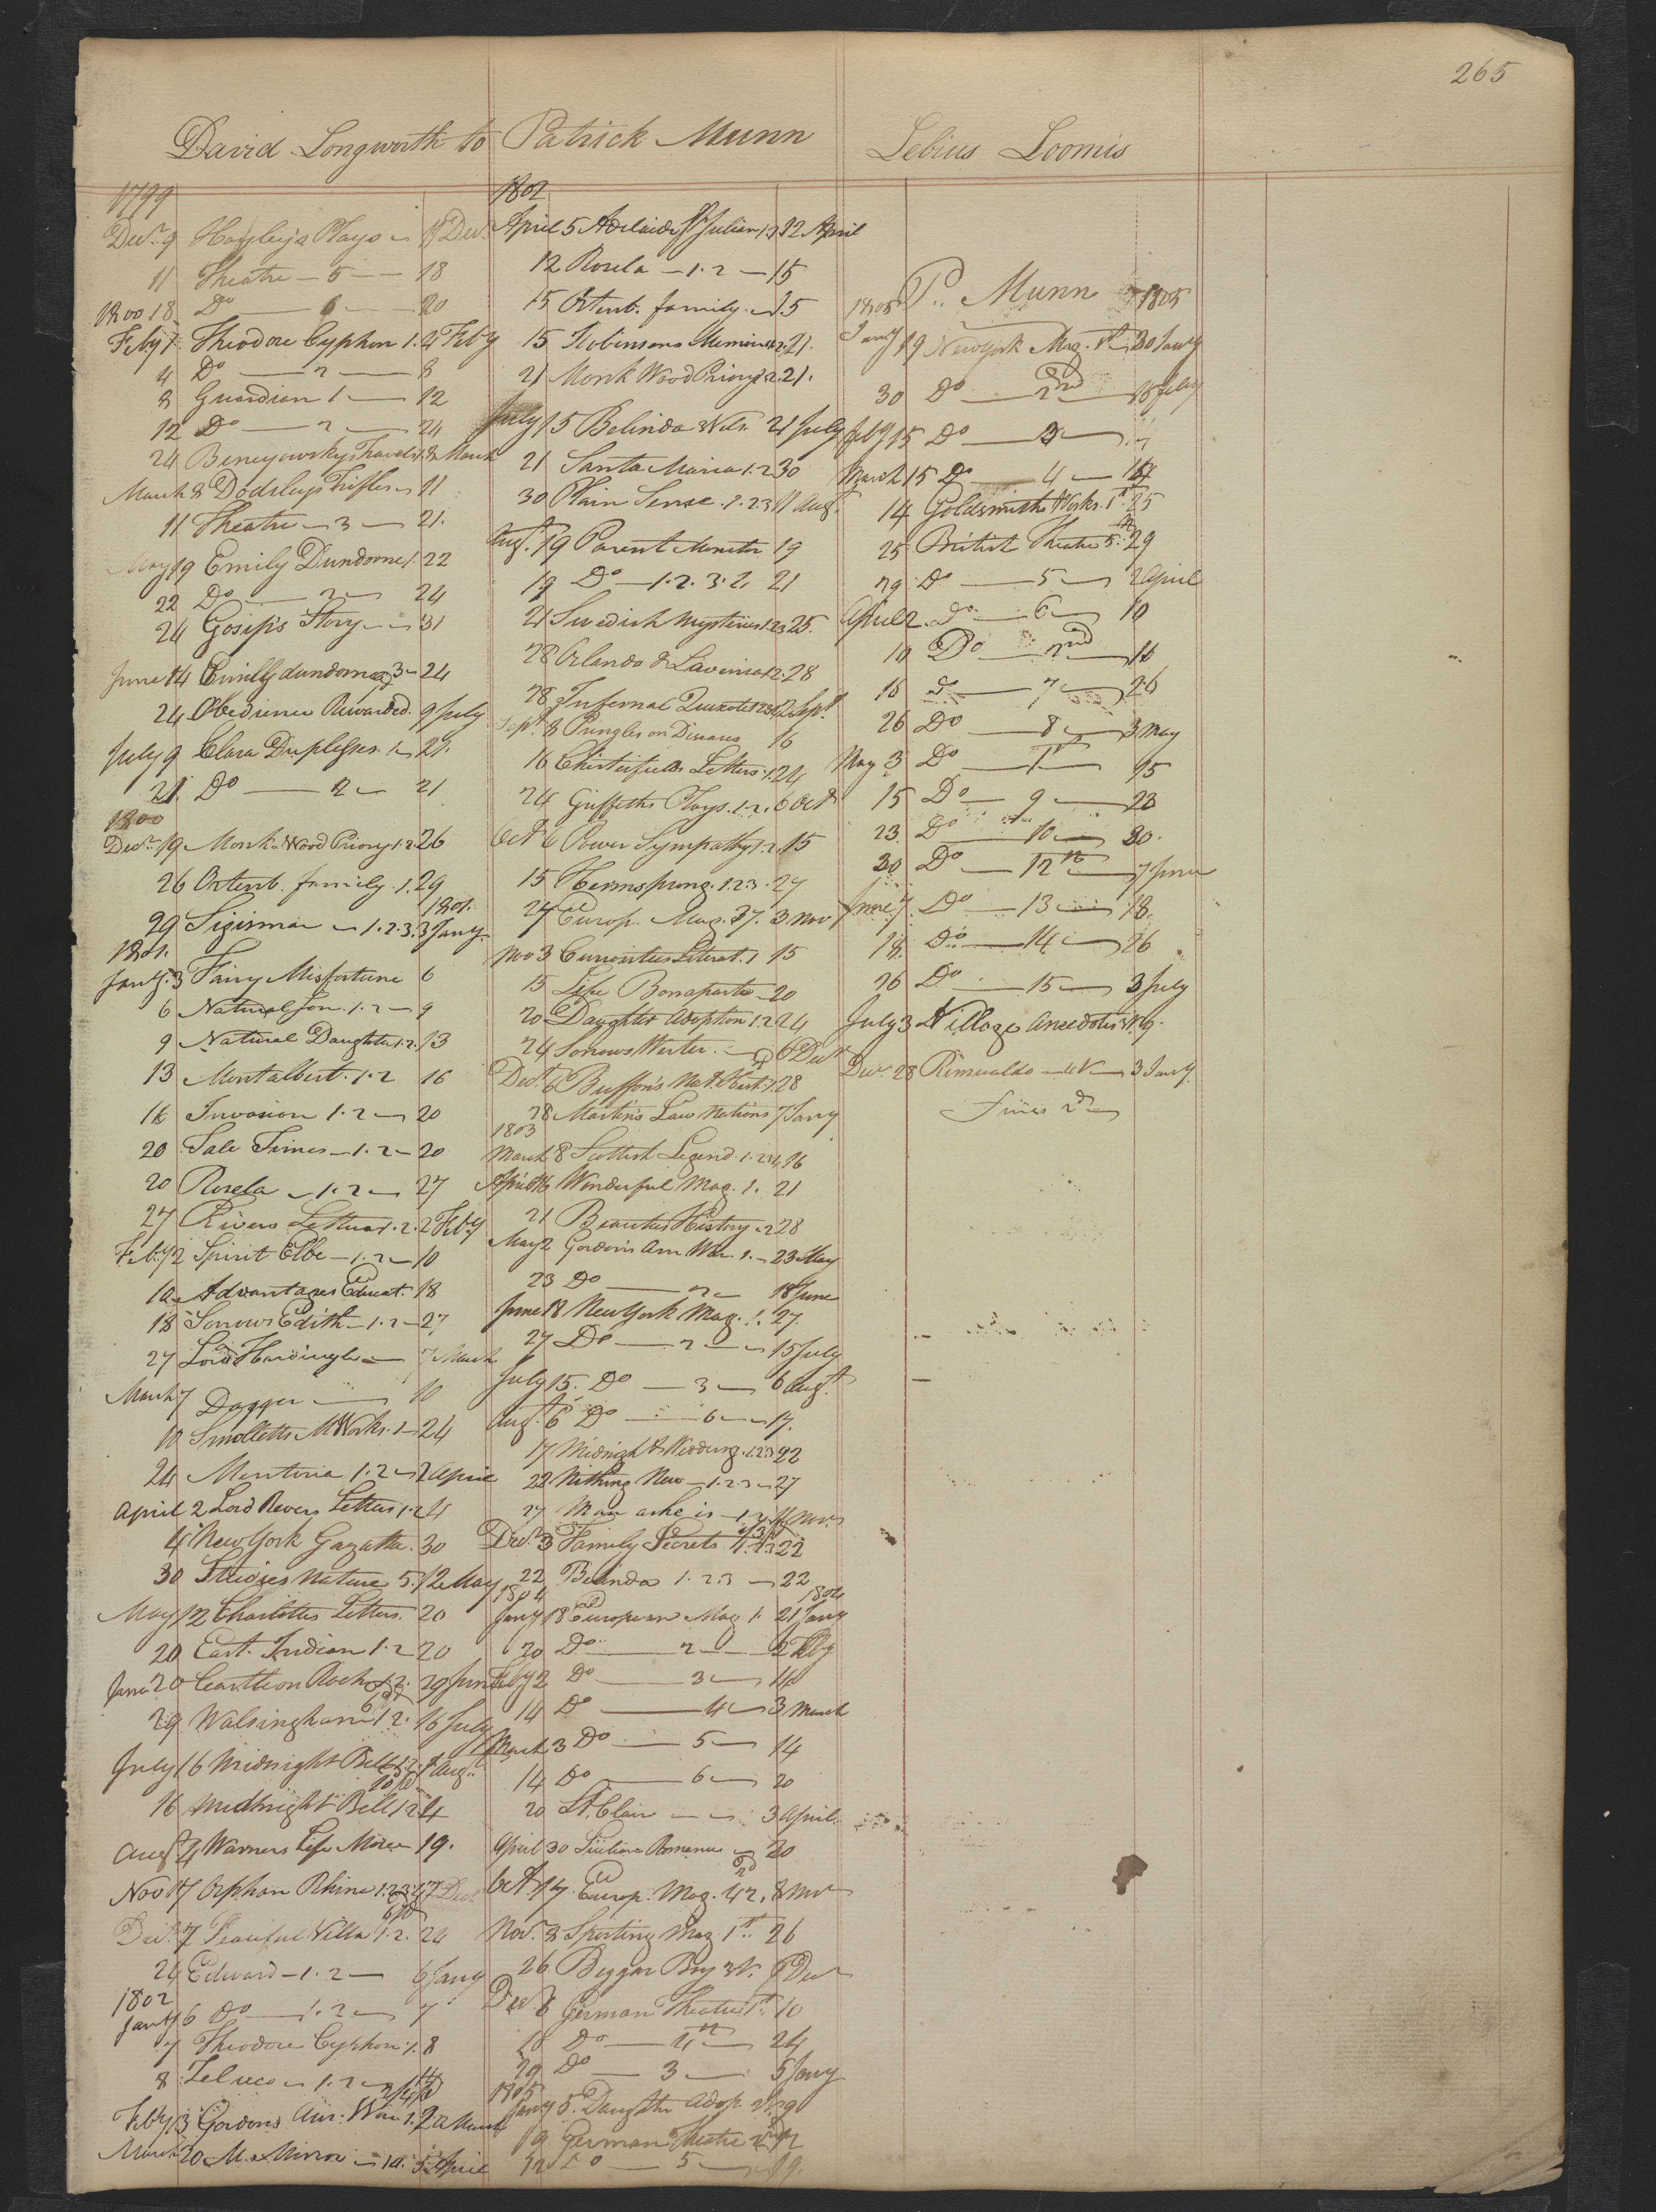 265
David Longworth to Patrick Munn
1799
Decr. 9 Hayley's Plays 11 Decr.
11 Theatre — 5 — 18
18 Do — 6 — 20
1800
Feby 1 Theodore Cyphon 1. 4 Feby
4 Do — 2 — 8
8 Guardian 1 — 12
12 Do — 2 — 24
24 Benyowsky's Travels 1. 8 March
March 8 Dodsleys Trifles 11
11 Theatre — 3 — 21.
May 19 Emily Dundorne 1. 22
22 Do — 2 — 24
24 Gosip's Story — 31
June 14 Emilly dundorne 3 — 24
24 Obedience Rewarded. 9 July
July 9 Clara Duplessis. 1 21.
21. Do — 2 — 21
1800
Decr. 19 Monk Wood Priory 1.2 26
26 Ortenb. family. 1. 29
29 Sigismar — 1.2.3. 3 Jany. 1801.
1801.
Jany. 3 Fairy Misfortune 6
6 Natural Son. 1.2 — 9
9 Natural Daughter 1.2. 13
13 Montalbert. 1.2 16
16 Invasion 1.2 — 20
20 Tale Times — 1.2 — 20
20 Rosela — 1.2 — 27
27 Rivers Letters 1.2. 2 Feby
Feby 2 Spirit Elbe — 1.2 — 10
10 Advantages Educat. 18
18 Sorrows Edith — 1.2 — 27
27 Lord Hardingle — 7 March
March 7 Dagger — 10
10 Smolletts M Works. 1 — 24
24 Mentoria 1.2 — 2 April
April 2 Lord Revers Letters 1.2 4
4 New York Gazatte. 30
30 Studies Nature 5. 12 May
May 12 Charlottes Letters. 20
20 East. Indian 1.2 20
June 20 Castle on Rock 1.2. 29 June
29 Walsingham 1.2. 16 July
July 16 Midnight Bell 1.2. Aug.
16 Midnight Bell 1.2 4
Augt 4 Warners Life Moree 19.
Nov 17 Orphan Rhine 1.2.3. 7 Decr
Decr. 7 Peaceful Villa 1.2. 24
24 Edward — 1.2 — 6 Jany
1802
Jany 6 Do — 1.2 — 7
7 Theodore Cyphon 1. 8
8 Zeluco — 1.2 — 14
Feby 13 Gordons Am: War 1. 20 March
March 20 M. Mirror — 10. 5 April
1802
April 5 Adelaide St Julian 1.2 12 April
12 Rosela — 1.2 — 15
15 Ortenb. family. 15
15 Robinsons Memoirs 21.
21 Monk Wood Priory 1.2. 21.
July 15 Belinda 2 Vols. 21 July
21 Santa Maria 1.2 30
30 Plain Sense. 1.2.3 11 Aug.
Augt. 19 Parent Monitor 19
19 Do — 1.2.3. 21
21 Swedish Mysteries 1.2.3 25.
28 Orlando & Lavinia 1.2. 28
28 Infernal Quixote 1.2.3. 2 Sept.
Sept. 8 Pringles on Diseases 16
16 Chesterfields Letters. 1. 24
24 Griffeths Plays. 1.2. 6 Oct
Oct 6 Power Sympathy 1.2. 15
15 Hermsprong. 1.2.3. 27
27 Europ. Mag. 37. 3 Nov
Nov 3 Curiosities Literat. 1 15
15 Life Bonaparte 20
20 Daughter Adoption 1.2 24
24 Sorrows Werter. — 6 Decr
Decr. 6 Buffon's Nat. Hist. 1. 28
28 Martins Law Nations 7 Jany
1803
March 8 Scottish Legend. 1.2.3.4 16
April 16 Wonderful Mag. 1. 21
21 Beauties History 2 28
May 2 Gordon's Am War. 1. — 23 May
23 Do — 2 — 18 June
June 18 New York Mag. 1. 27.
27 Do — 2 — 15 July
July 15. Do — 3 — 6 Augt.
Augt. 6 Do — 6 — 17.
17 Midnight Wedding. 1.2.3 22
22 Nothing New — 1.2.3 — 27
27 Man as he is — 1.2. Nov.
Decr. 3 Family Secrets 22
22 Belinda 1.2.3 — 22
1804
Jany 18 European Mag 1. 21 Jany 1804
20 Do — 2 — 2 Feby
Feby 2 Do — 3 — 14
14 Do — 4 — 3 March
March 3 Do — 5 — 14
14 Do — 6 — 20
20 St. Clair — 3 April.
April 30 Sicilian Romance — 20
Oct. 17. Europ. Mag. 42. 8 Nov
Nov. 8 Sporting Mag. 1st. 26
26 Beggar Boy 3 V. 6 Decr
Decr. 6 German Theatre 1st. 10
10 Do — 4th — 24
29 Do — 3 — 5 Jany
1805
Jany 5. Daughter Adop. 2 V. 9
9 German Theatre 12
12 Do — 5 — 19.
Lebius Loomis
P. Munn
1805 1805
Jany 19 New York Mag. 1st. 30 Jany
30 Do — 2nd — 15 feby
feby 15 Do — 3 — 4
March 15 Do — 4 — 14
14 Goldsmiths Works. 1st. 25
25 British Theatre 5. 29
29 Do — 5 — 2 April
April 2. Do — 6 — 10
10 Do — 2nd — 16
16 Do — 7 — 26
26 Do — 8 — 3 May
May 3 Do — 1st — 15
15 Do — 9 — 23
23 Do — 10 — 30.
30 Do — 12th — 7 June
June 7. Do — 13 — 18.
18. Do — 14 — 26
26 Do — 15 — 3 July
July 3 Village Anecdotes V. 9.
Decr. 28 Rimualdo — 4 V — 3 Jany
fines